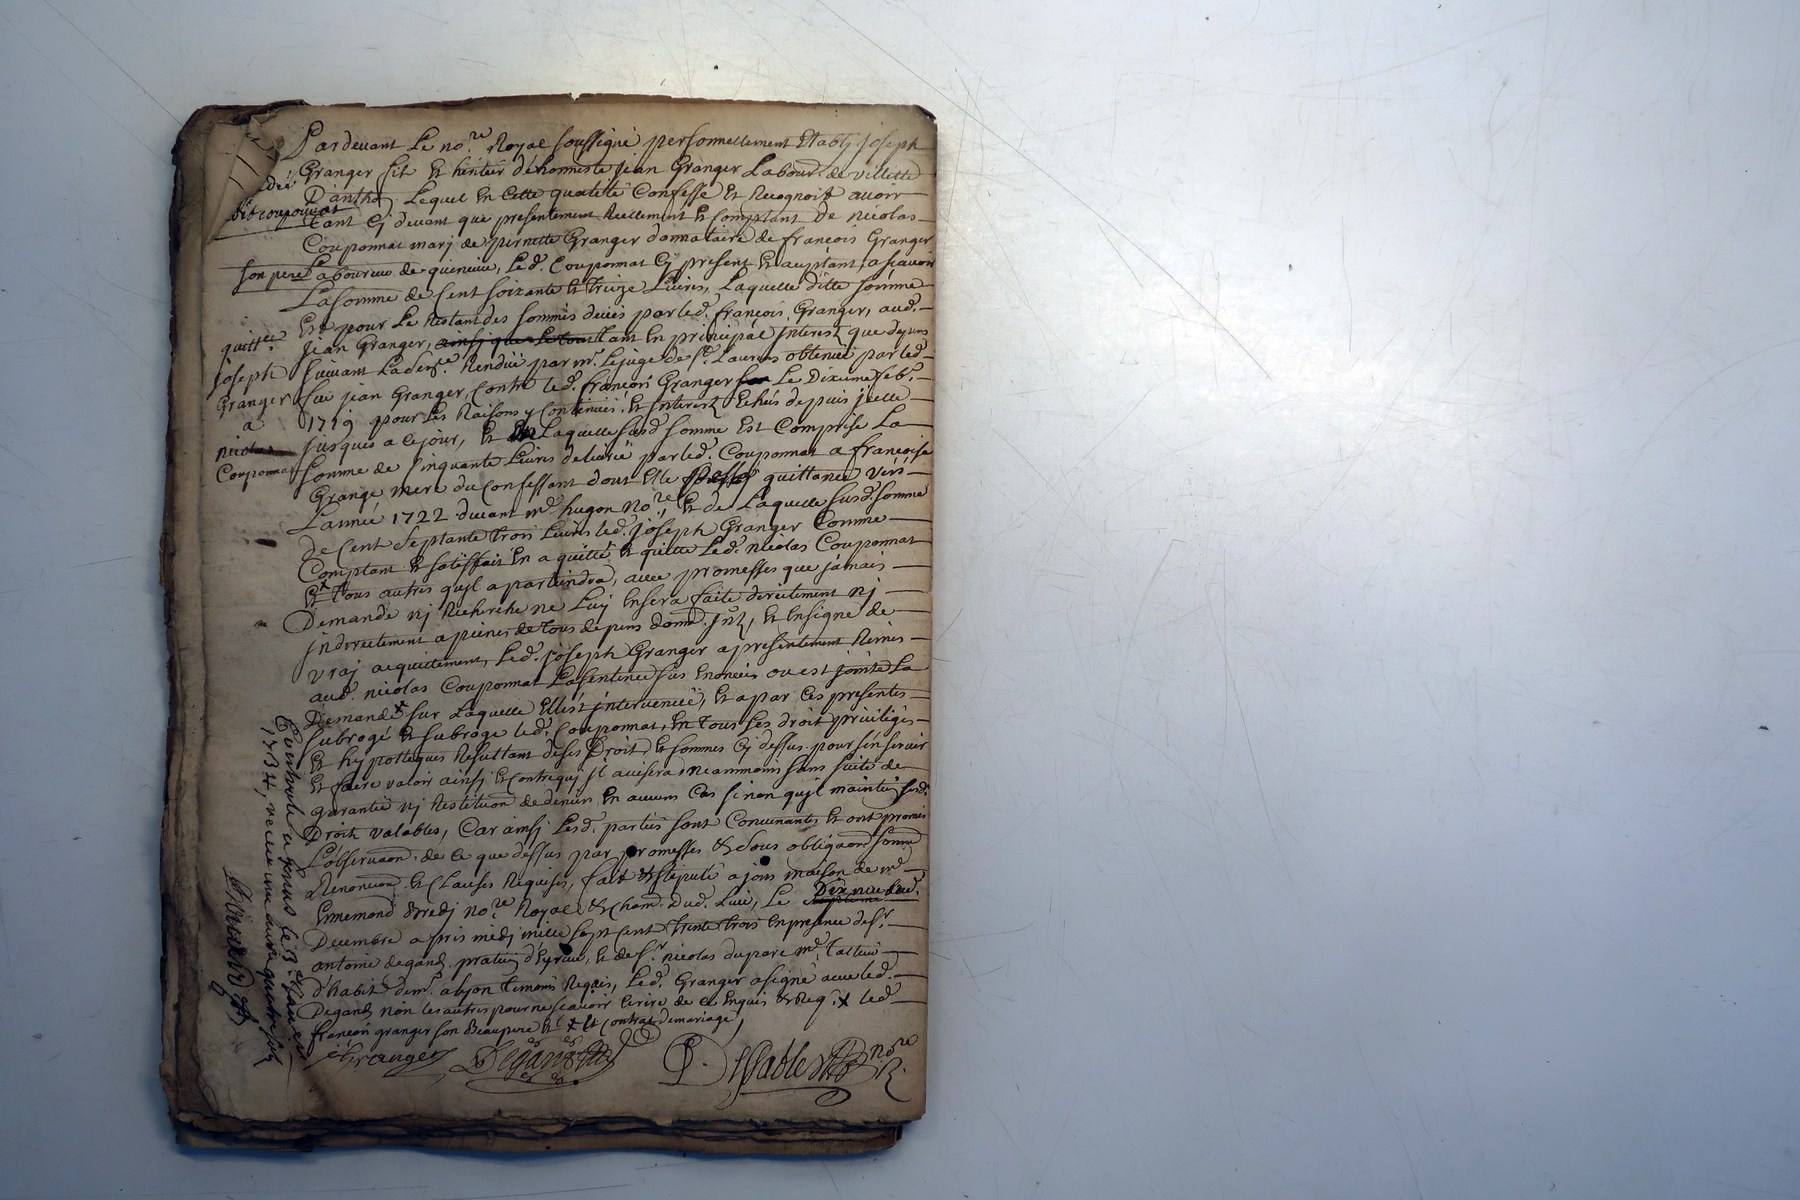 Pardevant Le no.re Royal soussigné personnellement Etably Joseph
Granger fils et heritier dehonneste Jean Granger Labour. de villette
D'anthon Lequel En Cette qualitté Confesse Et Recognoit avoir
dit couponnat
tant Cy devant que presentement Reellement Et Comptant De nicolas
Couponnat marj de pernette Granger donnataire de francois Granger
son pere Laboureur de quencieu, Led. Couponnat Cy present Et aceptant, ascavoir
La somme de Cent soixante Et treize Livres, Laquelle ditte somme
Est pour Le Restant des sommes deües par led. francois Granger, aud.
quitt.ce
Jean Granger, ainsj que Le tout tant En principal Interest que depens
Joseph
suivant La sen.ce Rendüe par mr. Lejuge de st. Laurens obtenüe par led.
Granger
feu Jean Granger, Contre led. francois Granger Le Dixieme feb.
a
1719 pour Les Raisons y Contenües, Et Interest Echus depuis jcelle
nicolas
Jusques a Cejour, Et Laquelle susd. somme Est Comprise La
Couponnat
somme de Cinquante Livres delivrée par led. Couponnat a francoise
Grange mere du Confessant dont Elle passa quittance vers
L'année 1722 devant me. hugon No.re, Et de Laquelle susd. somme
De Cent septante trois Livres led. Joseph Granger Comme
Comptant Et satisffait En a quitté Et quitte Led. nicolas Couponnat
Et tous autres quil apartiendra, avec promesses que jamais
Demande nj Recherche ne Luy Ensera faite directement nj
jndirectement a peines de tous depens dom. Int., Et En signe de
vraj acquittement, Led. Joseph Granger a presentement Remis
aud. nicolas Couponnat La sentence sus Enoncée ou est jointe La
Demande sur Laquelle Elle st intervenüe, Et a par Ces presentes
subrogé Et subroge led. Couponnat, En tous ses droit privileges
Et hypotteques Resultant deses Droit, Et sommes Cy dessus pour s'en servir
Et faire valoir ainsj Et Contre quj jl avisera, neammoins sans suite de
garantie nj Restitution de deniers En aucun Cas sinon quil maintient susd.
Droits valables, Car ainsj Lesd. parties sont Convenantes Et ont promis
L'observaon. de Ce que dessus par promesses Et sous obligaon.
Renonciaon. Et Clauses Requises, fait Et stipulé a jons maison de me.
Ennemond Bredj no.re Royal Et Chan. Dud. Lieu, Le Dix neuvieme
Decembre a pris midj mille sept Cent trente trois En presance de sr.
antoine degand praticien d'heyrieu, Et de sr. nicolas duparc me. tailleur
d'habit dem. a Lyon temoins Requis, Led. Granger a signé avec led.
Degand non Les autres pour ne scavoir Ecrire de Ce Enquis Et Req. x led.
francois granger son Beaupere Et x Et Contrat de mariage
Granger Degand
nore R.
Controlé a le 13 Janvier
1734, recu une livre quatre sols